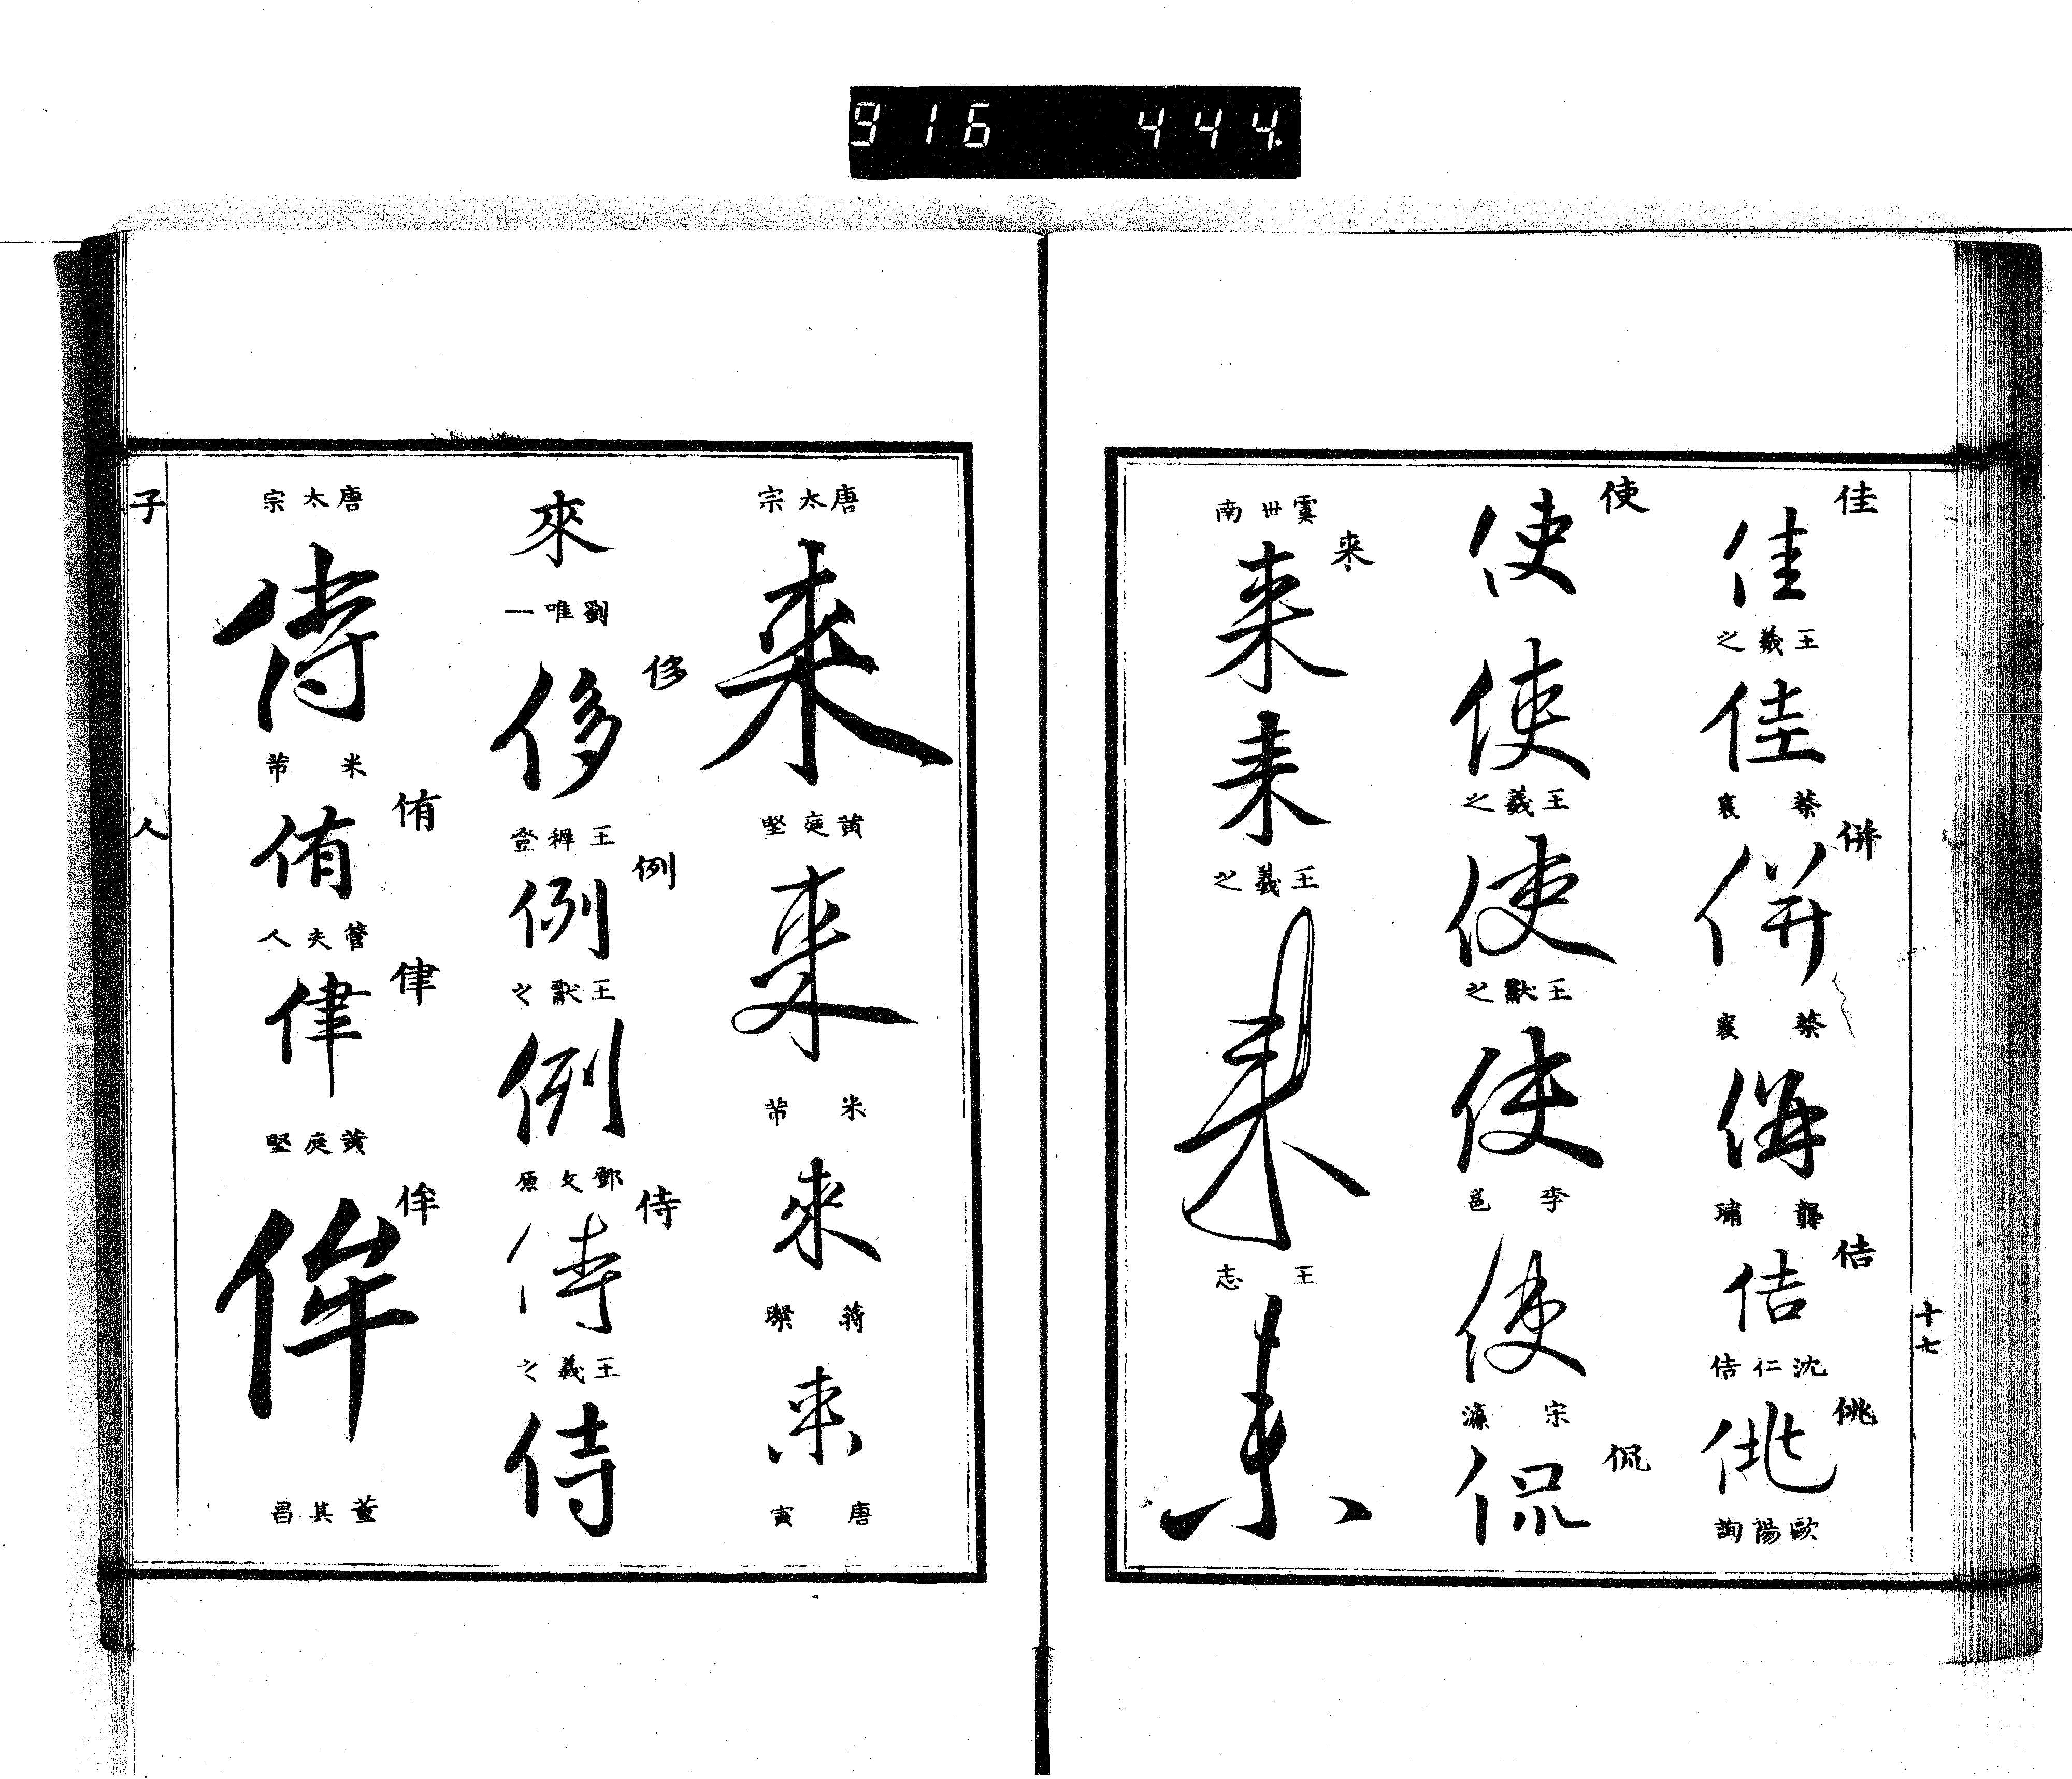 916 444.
佳
佳
王羲之
佳
蔡襄
併
併
蔡襄
併
龔璛
佶
佶
沈仁佶
佻
佻
歐陽詢
十七
使
使
使
王羲之
使
王獻之
使
李邕
使
宋濂
侃
侃
虞世南
来
来
来
王羲之
来
王志
来
唐太宗
来
黄庭堅
来
米芾
來
蔣璨
来
唐寅
來
劉唯一
侈
侈
王穉登
例
例
王獻之
例
鄧文原
侍
侍
王羲之
侍
唐太宗
侍
米芾
侑
侑
管夫人
侓
侓
黄庭堅
侔
侔
董其昌
子
人